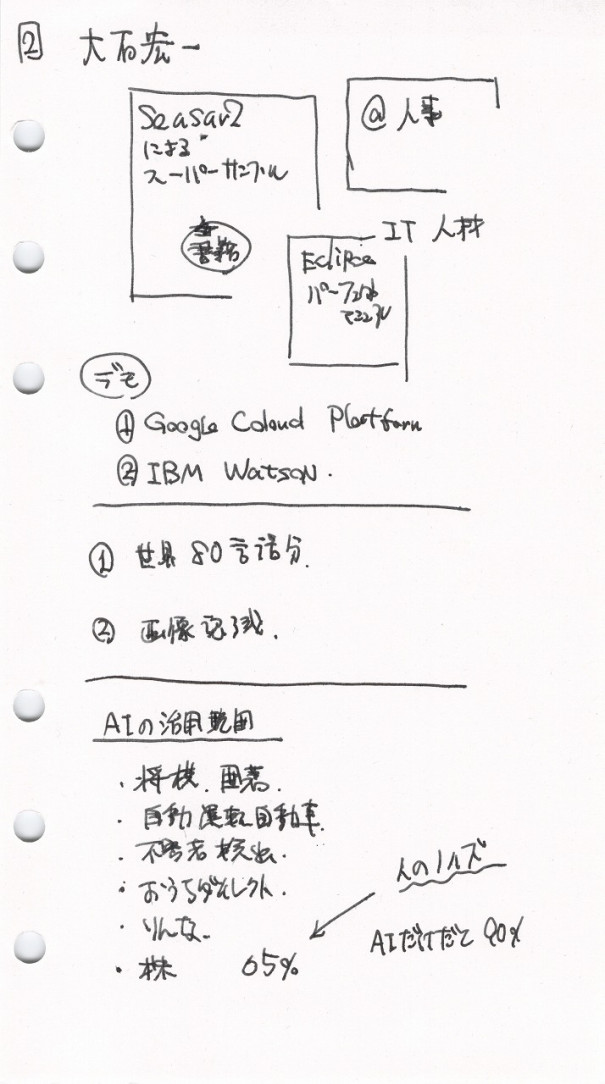 2 大石宏一
Seasar2
による
スーパーサンプル
書籍
@人事
IT 人材
Eclipce
パーフェクト
マニュアル
デモ
① Google Coloud Platform
② IBM Watson.
① 世界 80言語分.
② 画像認識.
AIの活用範囲
・将棋. 囲碁.
・自動運転自動車.
・不審者検出.
・おうちダイレクト.
・りんな.
・株 65%
人のノイズ
AIだけだと 90%